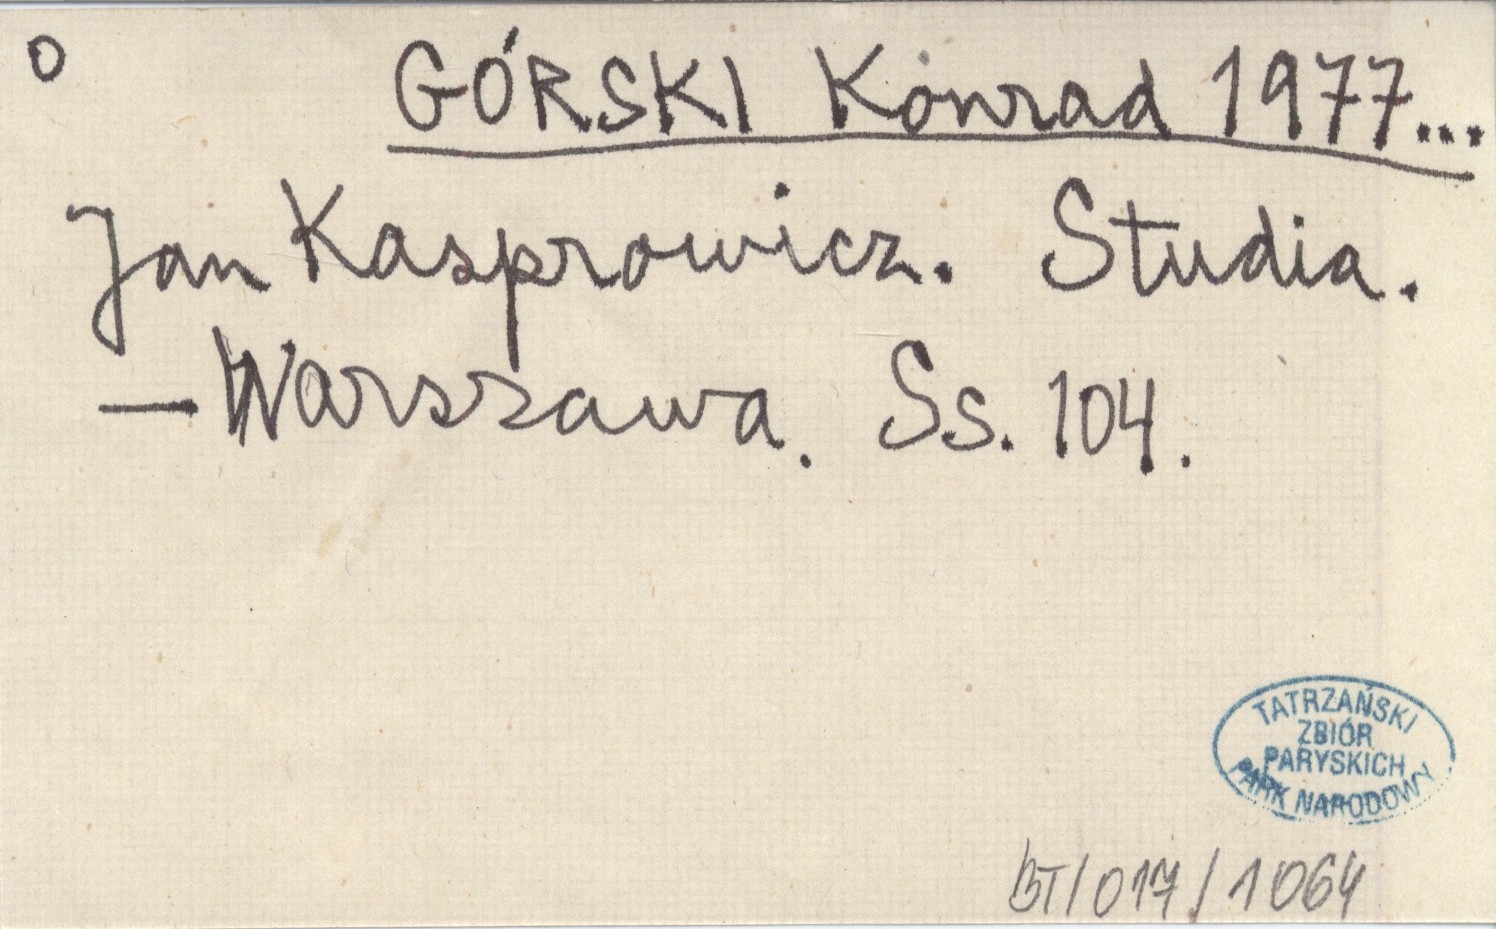 o GÓRSKI Konrad 1977...
Jan Kasprowicz. Studia.
— Warszawa. Ss. 104.
TATRZAŃSKI
ZBIÓR
PARYSKICH
PARK NARODOWY
BT/017/1064